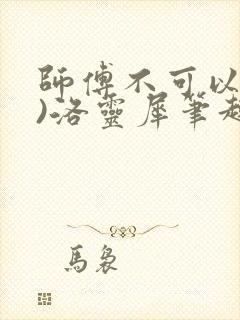 師傅不可以
)洛靈犀筆趣
馬裊